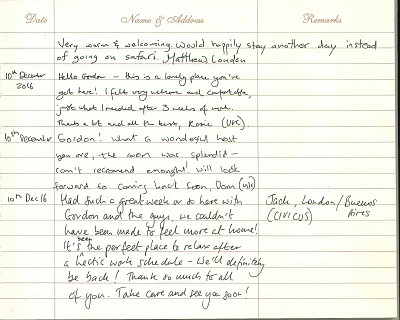 Date Name & Address Remarks
Very warm & welcoming. Would happily stay another day instead
of going on safari. Matthew, London
10th December Hello Gordon – this is a lovely place you've
2016 got here! I felt very welcome and comfortable,
just what I needed after 3 weeks of work.
Thanks a lot and all the best, Rosie (UK).
10th December Gordon! What a wonderful host
you are, the room was splendid –
can't recomend enought! will look
forward to coming back soon, Dom (UK)
10th Dec 16 Had such a great week or so here with Jack, London/Buenos
Gordon and the guys, we couldn't Aires
have been made to feel more at home! (CIVICUS)
It's been the perfect place to relax after
a hectic work schedule – We'll definitely
be back! Thank so much to all
of you. Take care and see you soon!